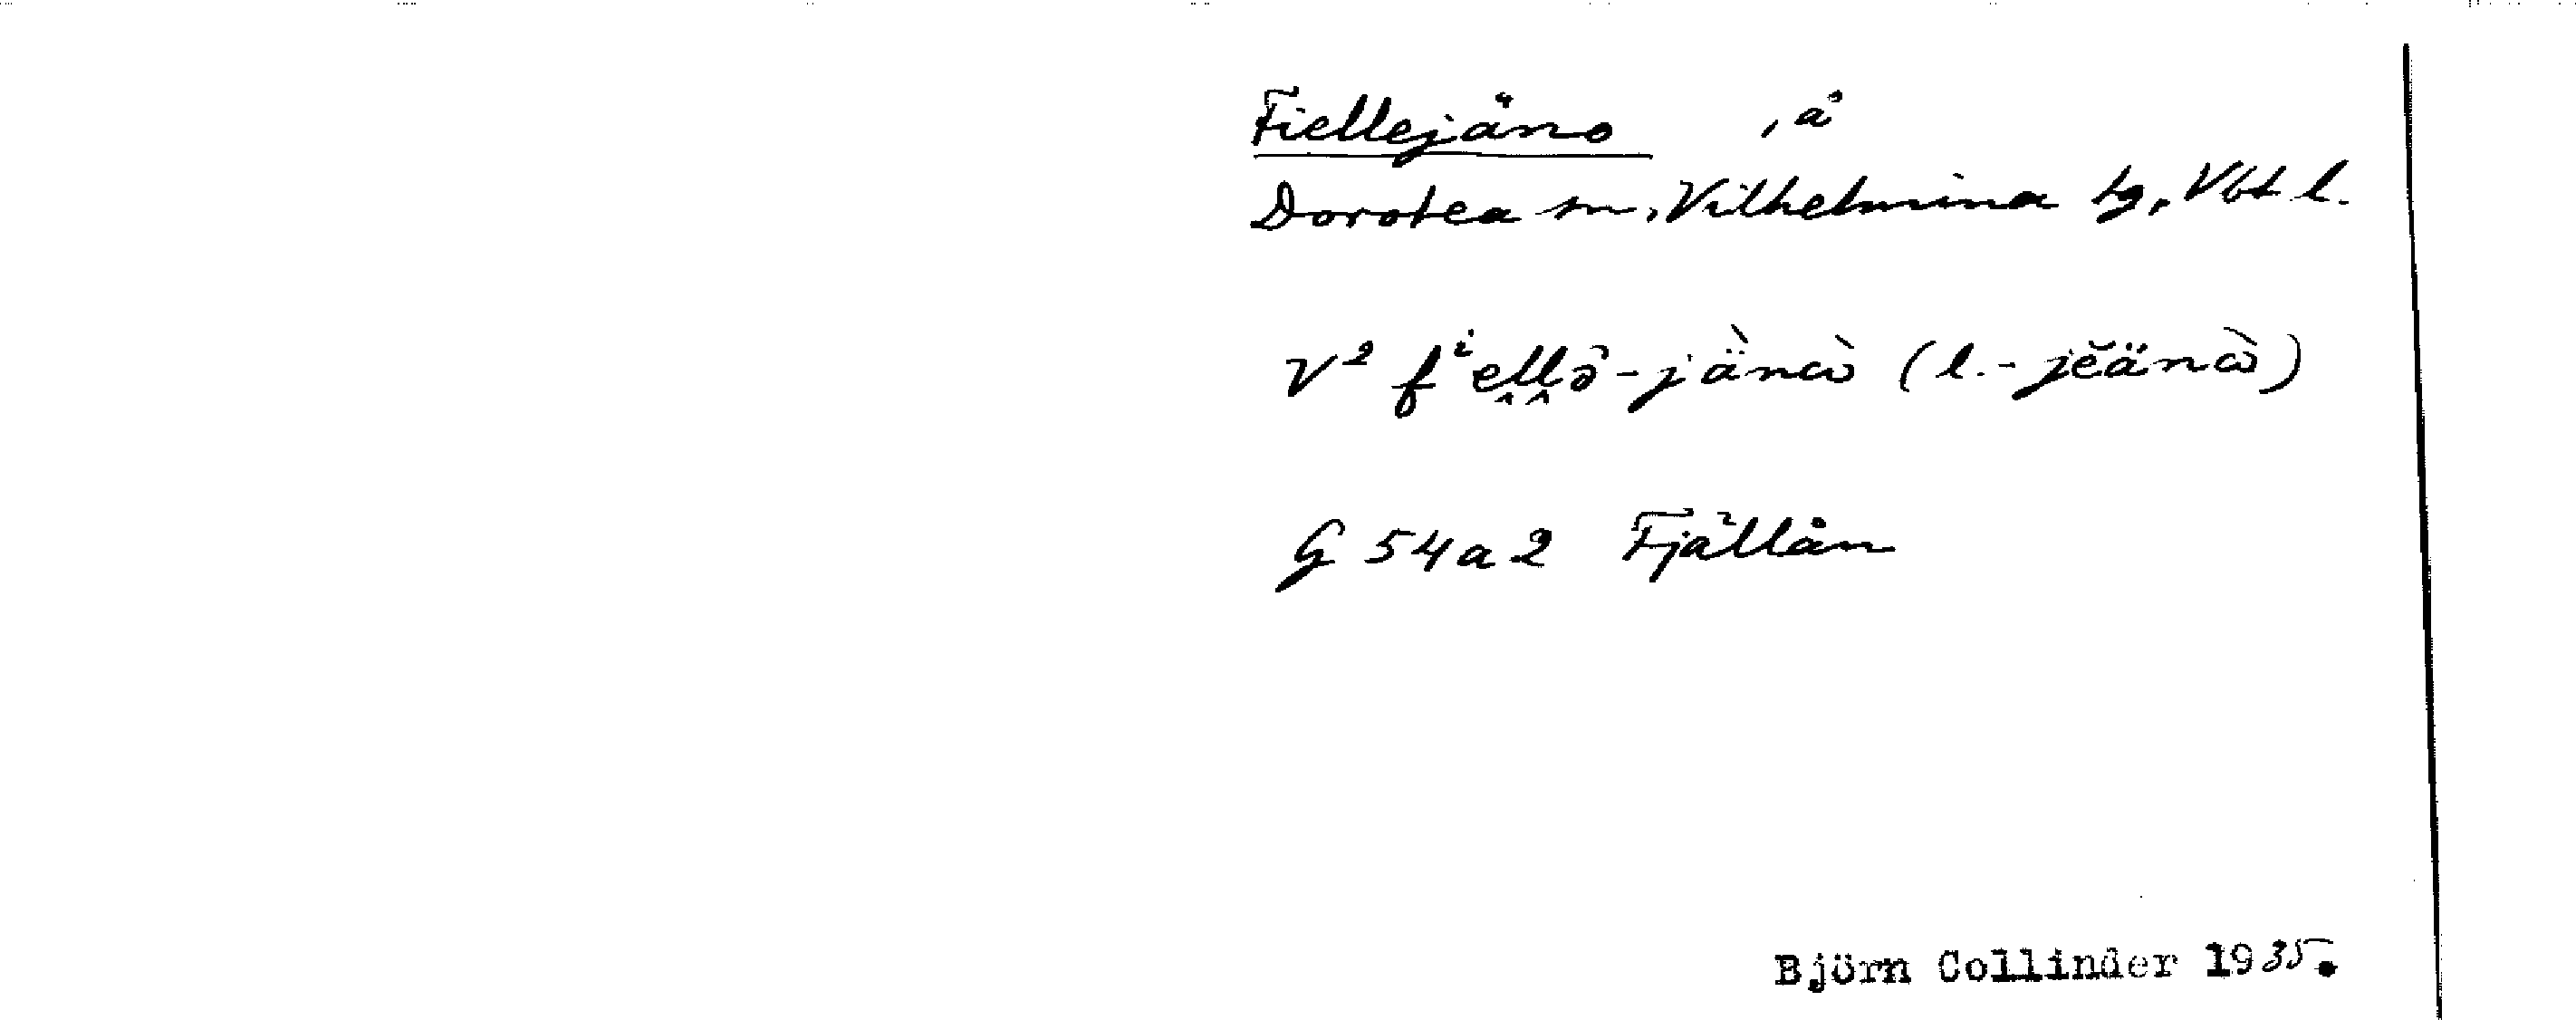 Fiellejäno , å
Dorotea sn, Vilhelmina tg, Vbt l.
V² fⁱeḽḽə̂-jä̀nɷ̀ (l. -jĕänɷ̀)
G 54a2 Fjällån
Björn Collinder 1935.